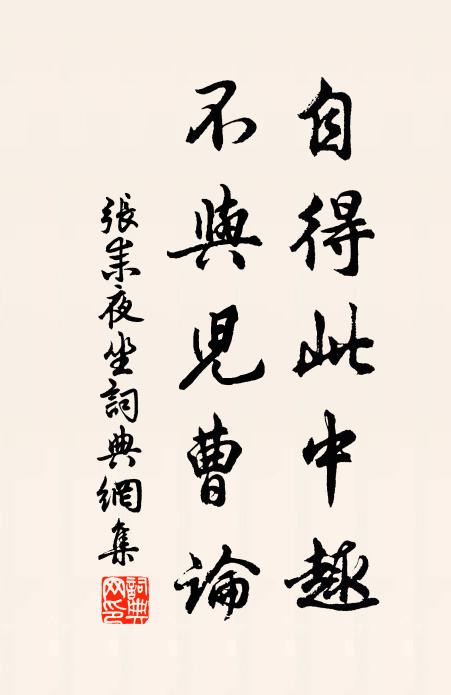 自得此中趣
不與兒曹論
張耒夜坐詞典網集
詞典網印